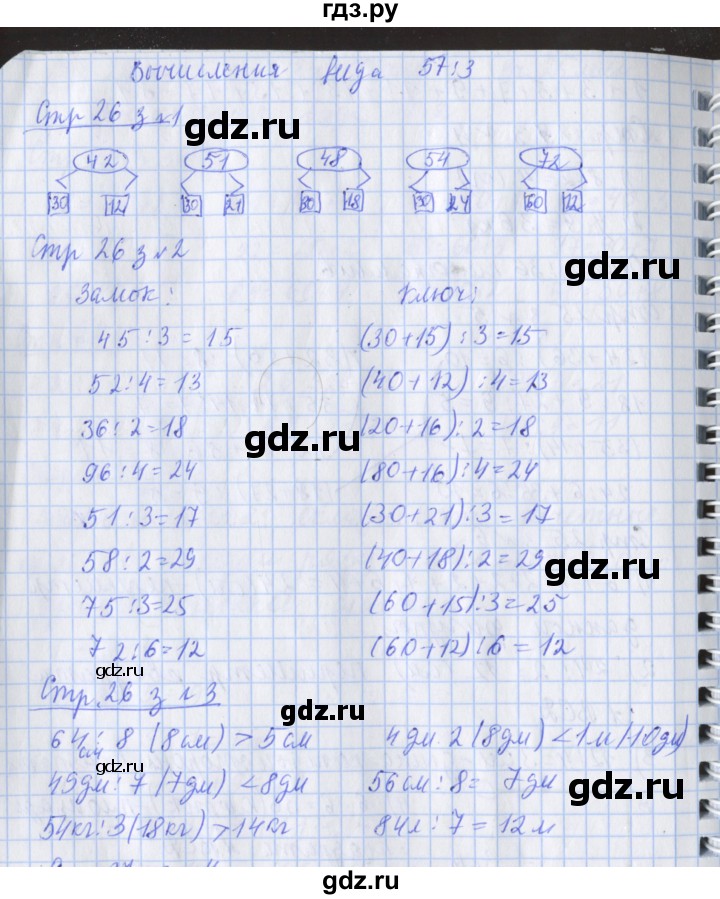 гдз.ру
Вычисления вида 57:3
Стр 26 з №1
42 51 48 54 72
30 12 30 21 30 18 30 24 60 12
Стр 26 з №2
Замок: Ключ:
45:3=15 (30+15):3=15
52:4=13 (40+12):4=13
36:2=18 (20+16):2=18
96:4=24 (80+16):4=24
51:3=17 (30+21):3=17
58:2=29 (40+18):2=29
75:3=25 (60+15):3=25
72:6=12 (60+12):6=12
Стр. 26 з №3
64см:8 (8см) > 5см 4дм·2 (8дм) < 1м (10дм)
49дм:7 (7дм) < 8дм 56см:8= 7дм
54кг:3 (18кг) > 14кг 84л:7=12л
gdz.ru
gdz.ru
gdz.ru
gdz.ru
gdz.ru
gdz.ru
gdz.ru
gdz.ru
gdz.ru
gdz.ru
gdz.ru